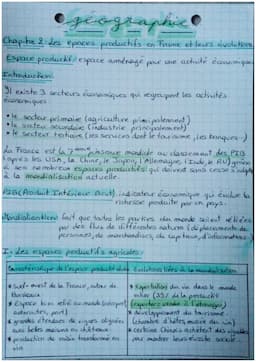 géographie
Chapitre 2: Les espaces productifs en France et leurs évolutions
Espace productif: espace aménagé pour une activité économique.
Introduction:
Il existe 3 secteurs économiques qui regroupent les activités
économiques:
• le secteur primaire (agriculture principalement)
• le secteur secondaire (industrie principalement)
• le secteur tertiaire (les services dont le tourisme, les banques...)
La France est la 7ème puissance mondiale au classement des PIB
(après les USA, la Chine, le Japon, l'Allemagne, l'Inde, le RU) grâce
à ses nombreux espaces productifs qui doivent sans cesse s'adapter
à la mondialisation actuelle.
PIB (Produit Intérieur Brut): indicateur économique qui évalue la
richesse produite par un pays.
Mondialisation: fait que toutes les parties du monde soient reliées
par des flux de différentes natures (déplacements de
personnes, de marchandises, de capitaux, d'informations)
I- Les espaces productifs agricoles:
Caractéristiques de l'espace productif
Evolutions liées à la mondialisation
• Sud-ouest de la France, autour de
Bordeaux
• Espace bien relié au monde (aéroport,
autoroutes, port)
• grandes étendues de vignes alignées
avec belles maisons ou châteaux
• production de raisin transformé en
vin
• Exportation du vin dans le monde
entier (35% de la production)
(exporter: vendre à l'étranger)
• développement du tourisme
(chambre d'hôtes, musée du vin)
• certains Chinois achètent des vignobles
pour montrer leur réussite sociale